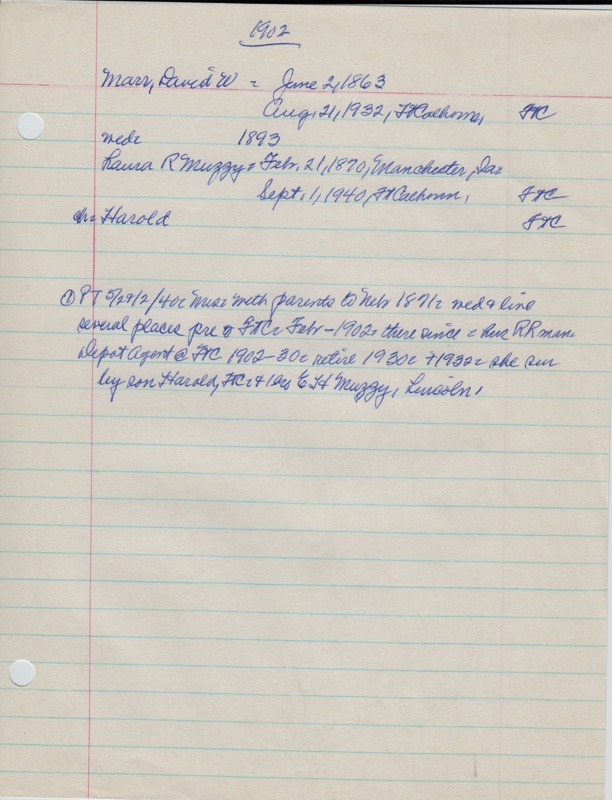 1902
Marr, David W = June 2, 1863
Aug. 21, 1932, Ft Calhoun, FTC
med= 1893
Laura R Muzzy = Febr. 21, 1870, Manchester, Ia=
Sept. 1, 1940, Ft Calhoun, FTC
ch= Harold FTC
① PT 9/2/40= with parents to Nebr 1871= med & live
several places pre FTC Febr-1902= there since = hus RR man=
Depot Agent @ FTC 1902-30= retire 1930= +1932= she sur
by son Harold, FTC & bro E H Muzzy, Lincoln,